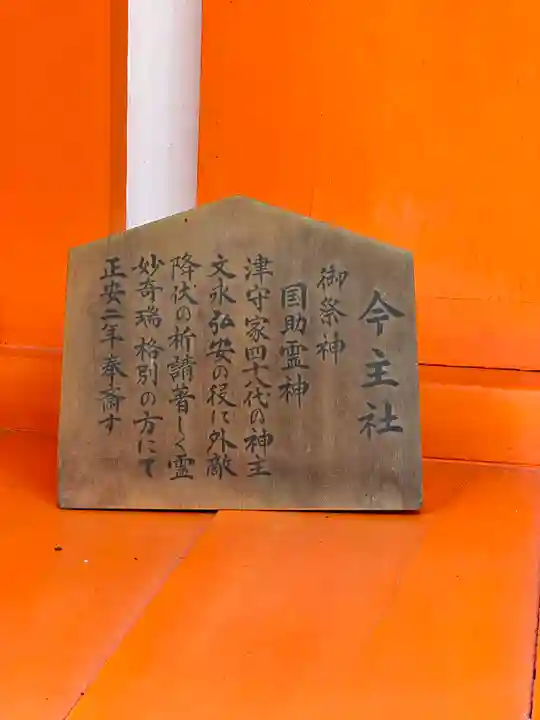 今主社
御祭神
国助霊神
津守家四十八代の神主
文永弘安の役に外敵
降伏の祈請著しく霊
妙奇瑞格別の方にて
正安二年春斎す